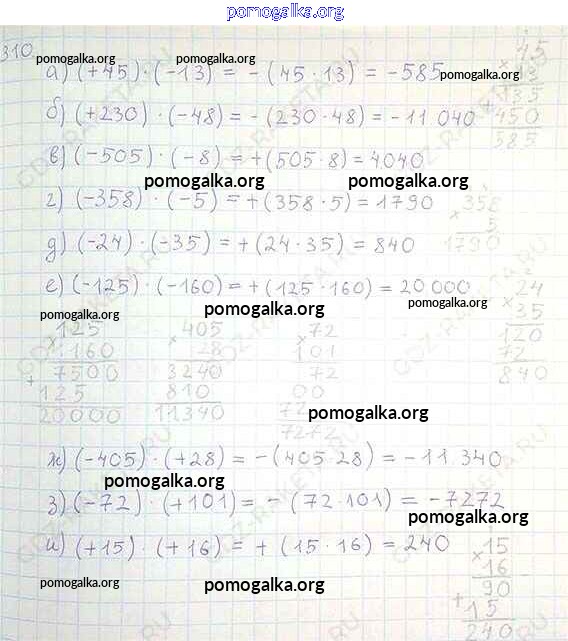 pomogalka.org
310
pomogalka.org pomogalka.org
а) (+45) · (-13) = - (45 · 13) = -585 pomogalka.org
б) (+230) · (-48) = - (230 · 48) = -11 040
в) (-505) · (-8) = + (505 · 8) = 4040
pomogalka.org pomogalka.org
г) (-358) · (-5) = + (358 · 5) = 1790
д) (-24) · (-35) = + (24 · 35) = 840
е) (-125) · (-160) = + (125 · 160) = 20 000
pomogalka.org pomogalka.org pomogalka.org
45
× 13
+ 135
450
585
358
× 5
1790
24
× 35
120
72
840
× 125
160
+ 7500
125
20000
405
× 28
3240
810
11340
72
× 101
72
00
72
7272
pomogalka.org
ж) (-405) · (+28) = - (405 · 28) = -11 340
pomogalka.org
з) (-72) · (+101) = - (72 · 101) = -7272
pomogalka.org
и) (+15) · (+16) = + (15 · 16) = 240
15
× 16
+ 90
15
240
pomogalka.org pomogalka.org
GDZ-RAKETA.RU